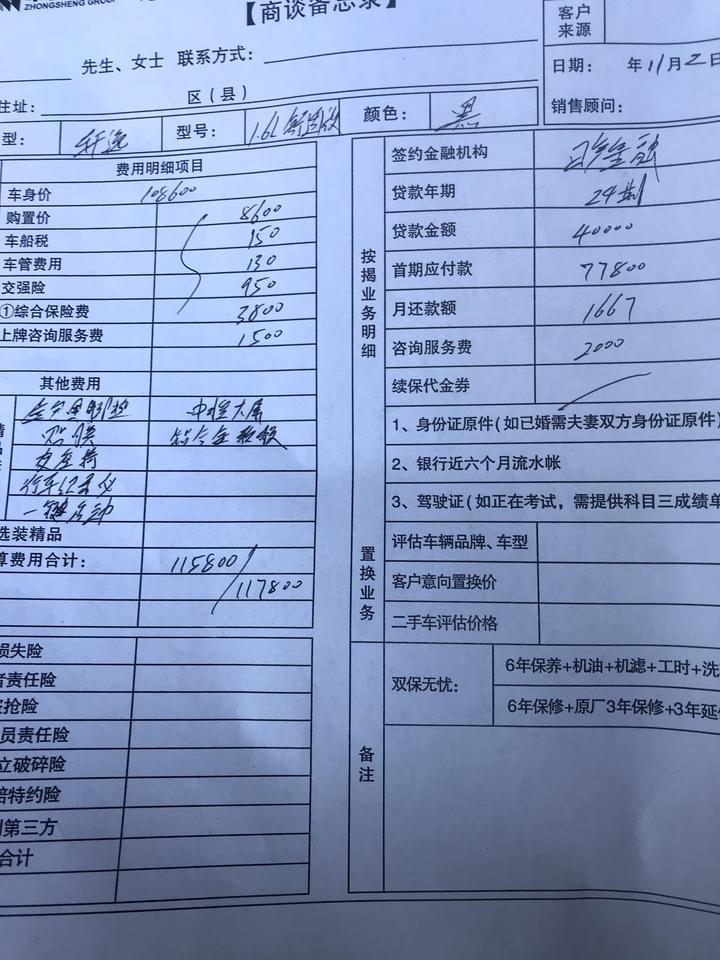 ZHONGSHENG GROUP
【商谈备忘录】
客户来源
先生、女士 联系方式：
日期： 年11月2日
住址： 区(县)
销售顾问：
型： 轩逸 型号： 1.6L 颜色： 黑
费用明细项目
车身价 108600
购置价 8600
车船税 150
车管费用 130
交强险 950
①综合保险费 3800
上牌咨询服务费 1500
其他费用
中控大屏
贴膜
行车记录仪
一键启动
选装精品
算费用合计： 115800/
117800
损失险
者责任险
抢险
员责任险
立破碎险
赔特约险
第三方
合计
按揭业务明细
签约金融机构 日产金融
贷款年期 24期
贷款金额 40000
首期应付款 77800
月还款额 1667
咨询服务费 2000
续保代金券
1、身份证原件(如已婚需夫妻双方身份证原件)
2、银行近六个月流水帐
3、驾驶证(如正在考试，需提供科目三成绩单
置换业务
评估车辆品牌、车型
客户意向置换价
二手车评估价格
备注
双保无忧：
6年保养+机油+机滤+工时+洗
6年保修+原厂3年保修+3年延